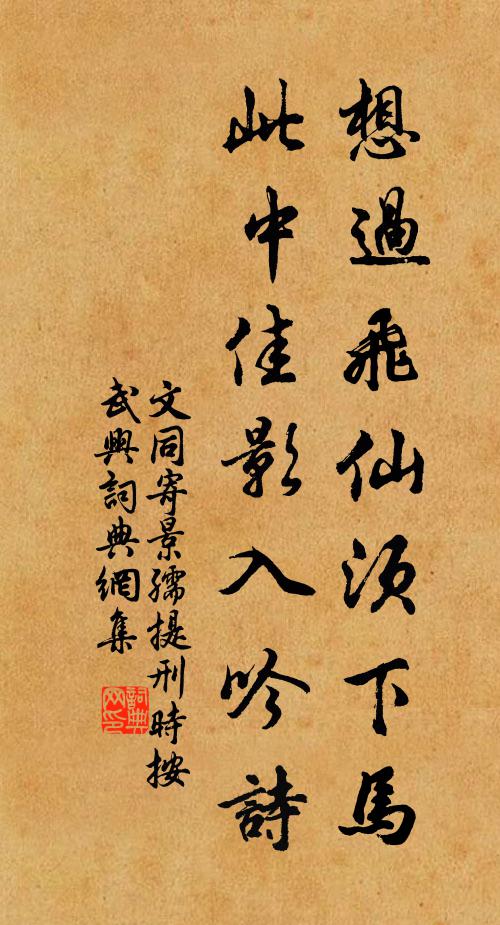 想過飛仙須下馬
此中佳影入吟詩
文同寄景孺提刑時按
武興詞典網集
詞典网印